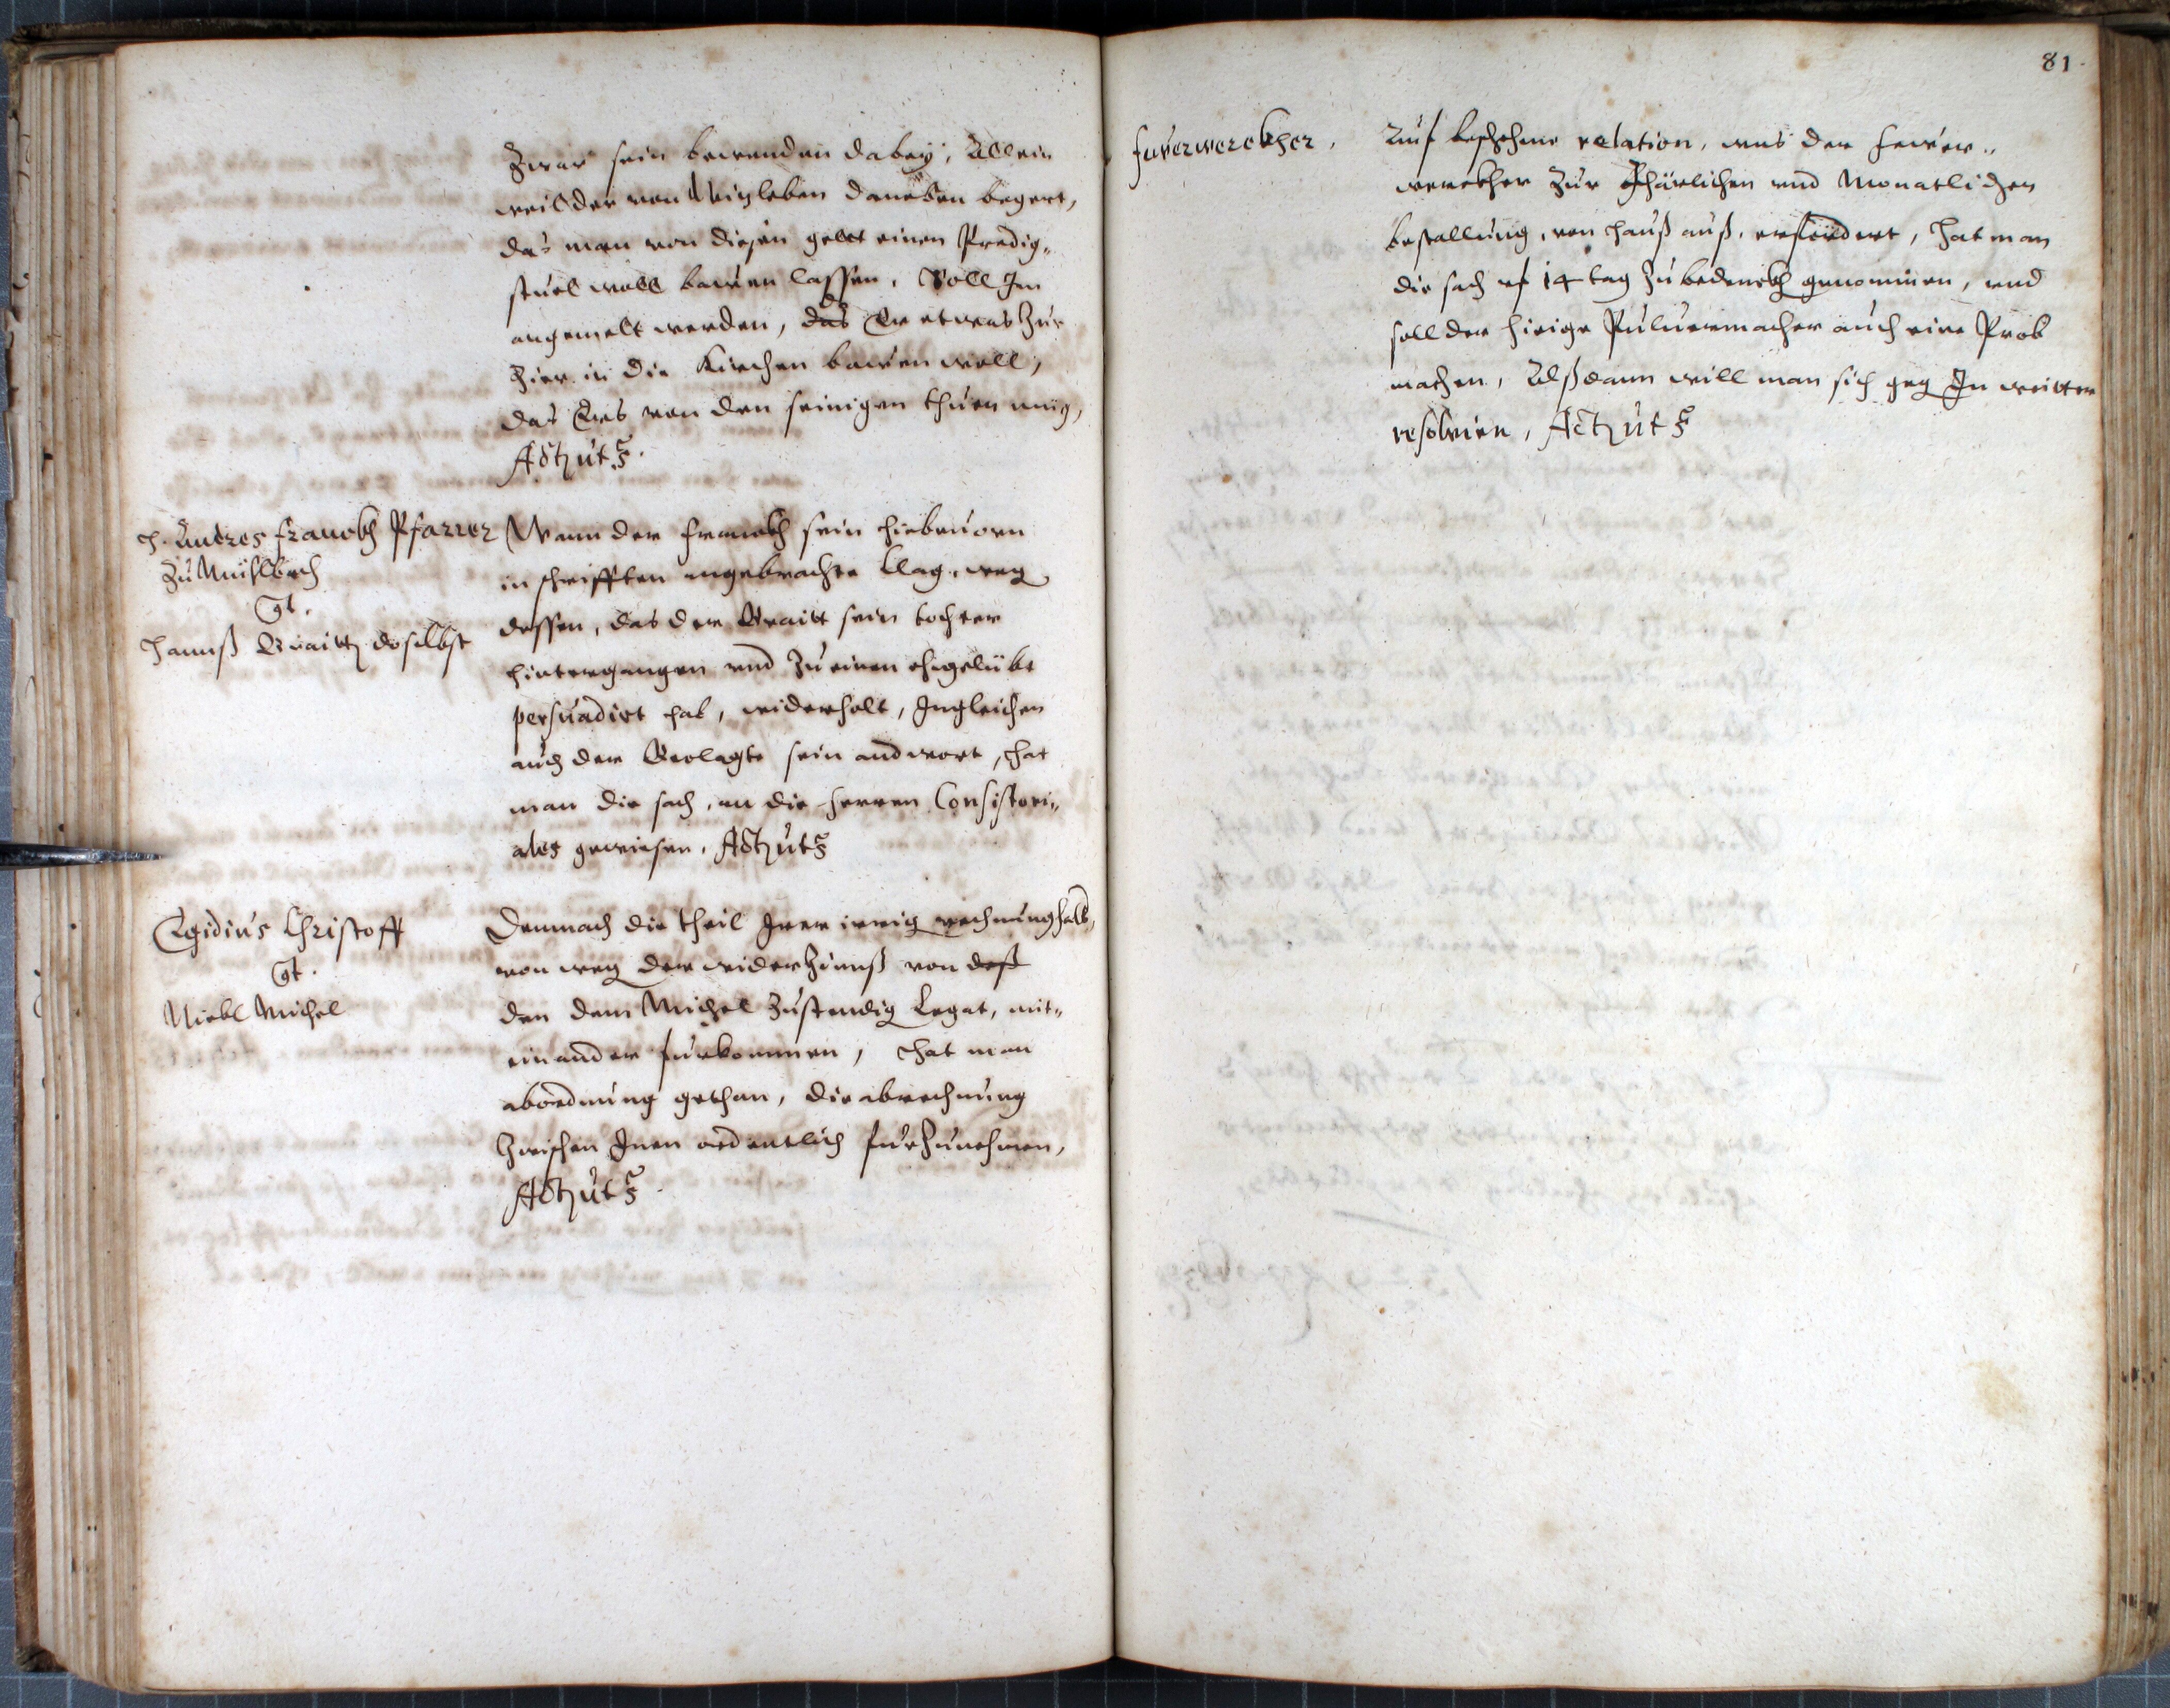 Zwar sein bewenden dabey, Allein
weil der von Wizleben daneben begert,
das man von diesem gellt einen Predig„
stuel woll bawen lassen, Soll Im
angemelt werden, das Er etwas Zur
Zier in die Kirchen bawen woll,
das Ers von den seinigen thuen mug,
Act. ut s.
H. Andres Franckh Pfarrer
Zu Mühlbach
Gt.
Hanns Braitt daselbst
Wann der Franckh sein hiebeuorn
in schrifften angebrachte klag, weg
dessen, das der Braitt sein tochter
hintergangen vnd Zu einem ehegelübt
persuadirt hab, widerholt, Ingleichen
auch der Beclagte sein andwort, hat
man die sach, an die herren Consistori„
ales gewisen. Act. ut s.
Egidius Christoff
Gt.
Michel
Demnach die theil Irer irrig rechnung halb,
von weg der widerZinnß von deß
den dem Michel Zustendig Legat, mit„
einander furkommen, hat man
abordnung gethan, die abrechnung
Zwischen Inen ordentlich furZunehmen,
Act. ut s.
81.
Fuerwerckher.
Auf beschehene relation, was der Fewer„
werckher Zur Jharlichen vnd Monatlichen
bestallung, von hauß auß, erfordert, hat man
die sach vf 14 tag Zu bedenckh genommen, vnd
soll der hieige Puluermacher auch eine Prob
machen, Alßdann will man sich geg In weitter
resolvirn, Act. ut s.